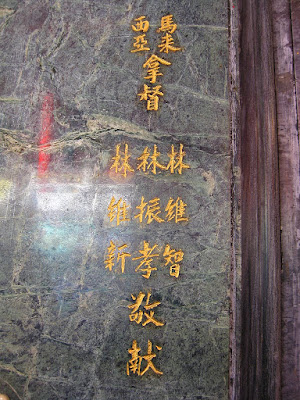 馬来
西亞
拿督
林維智
林振孝
林維新
敬献